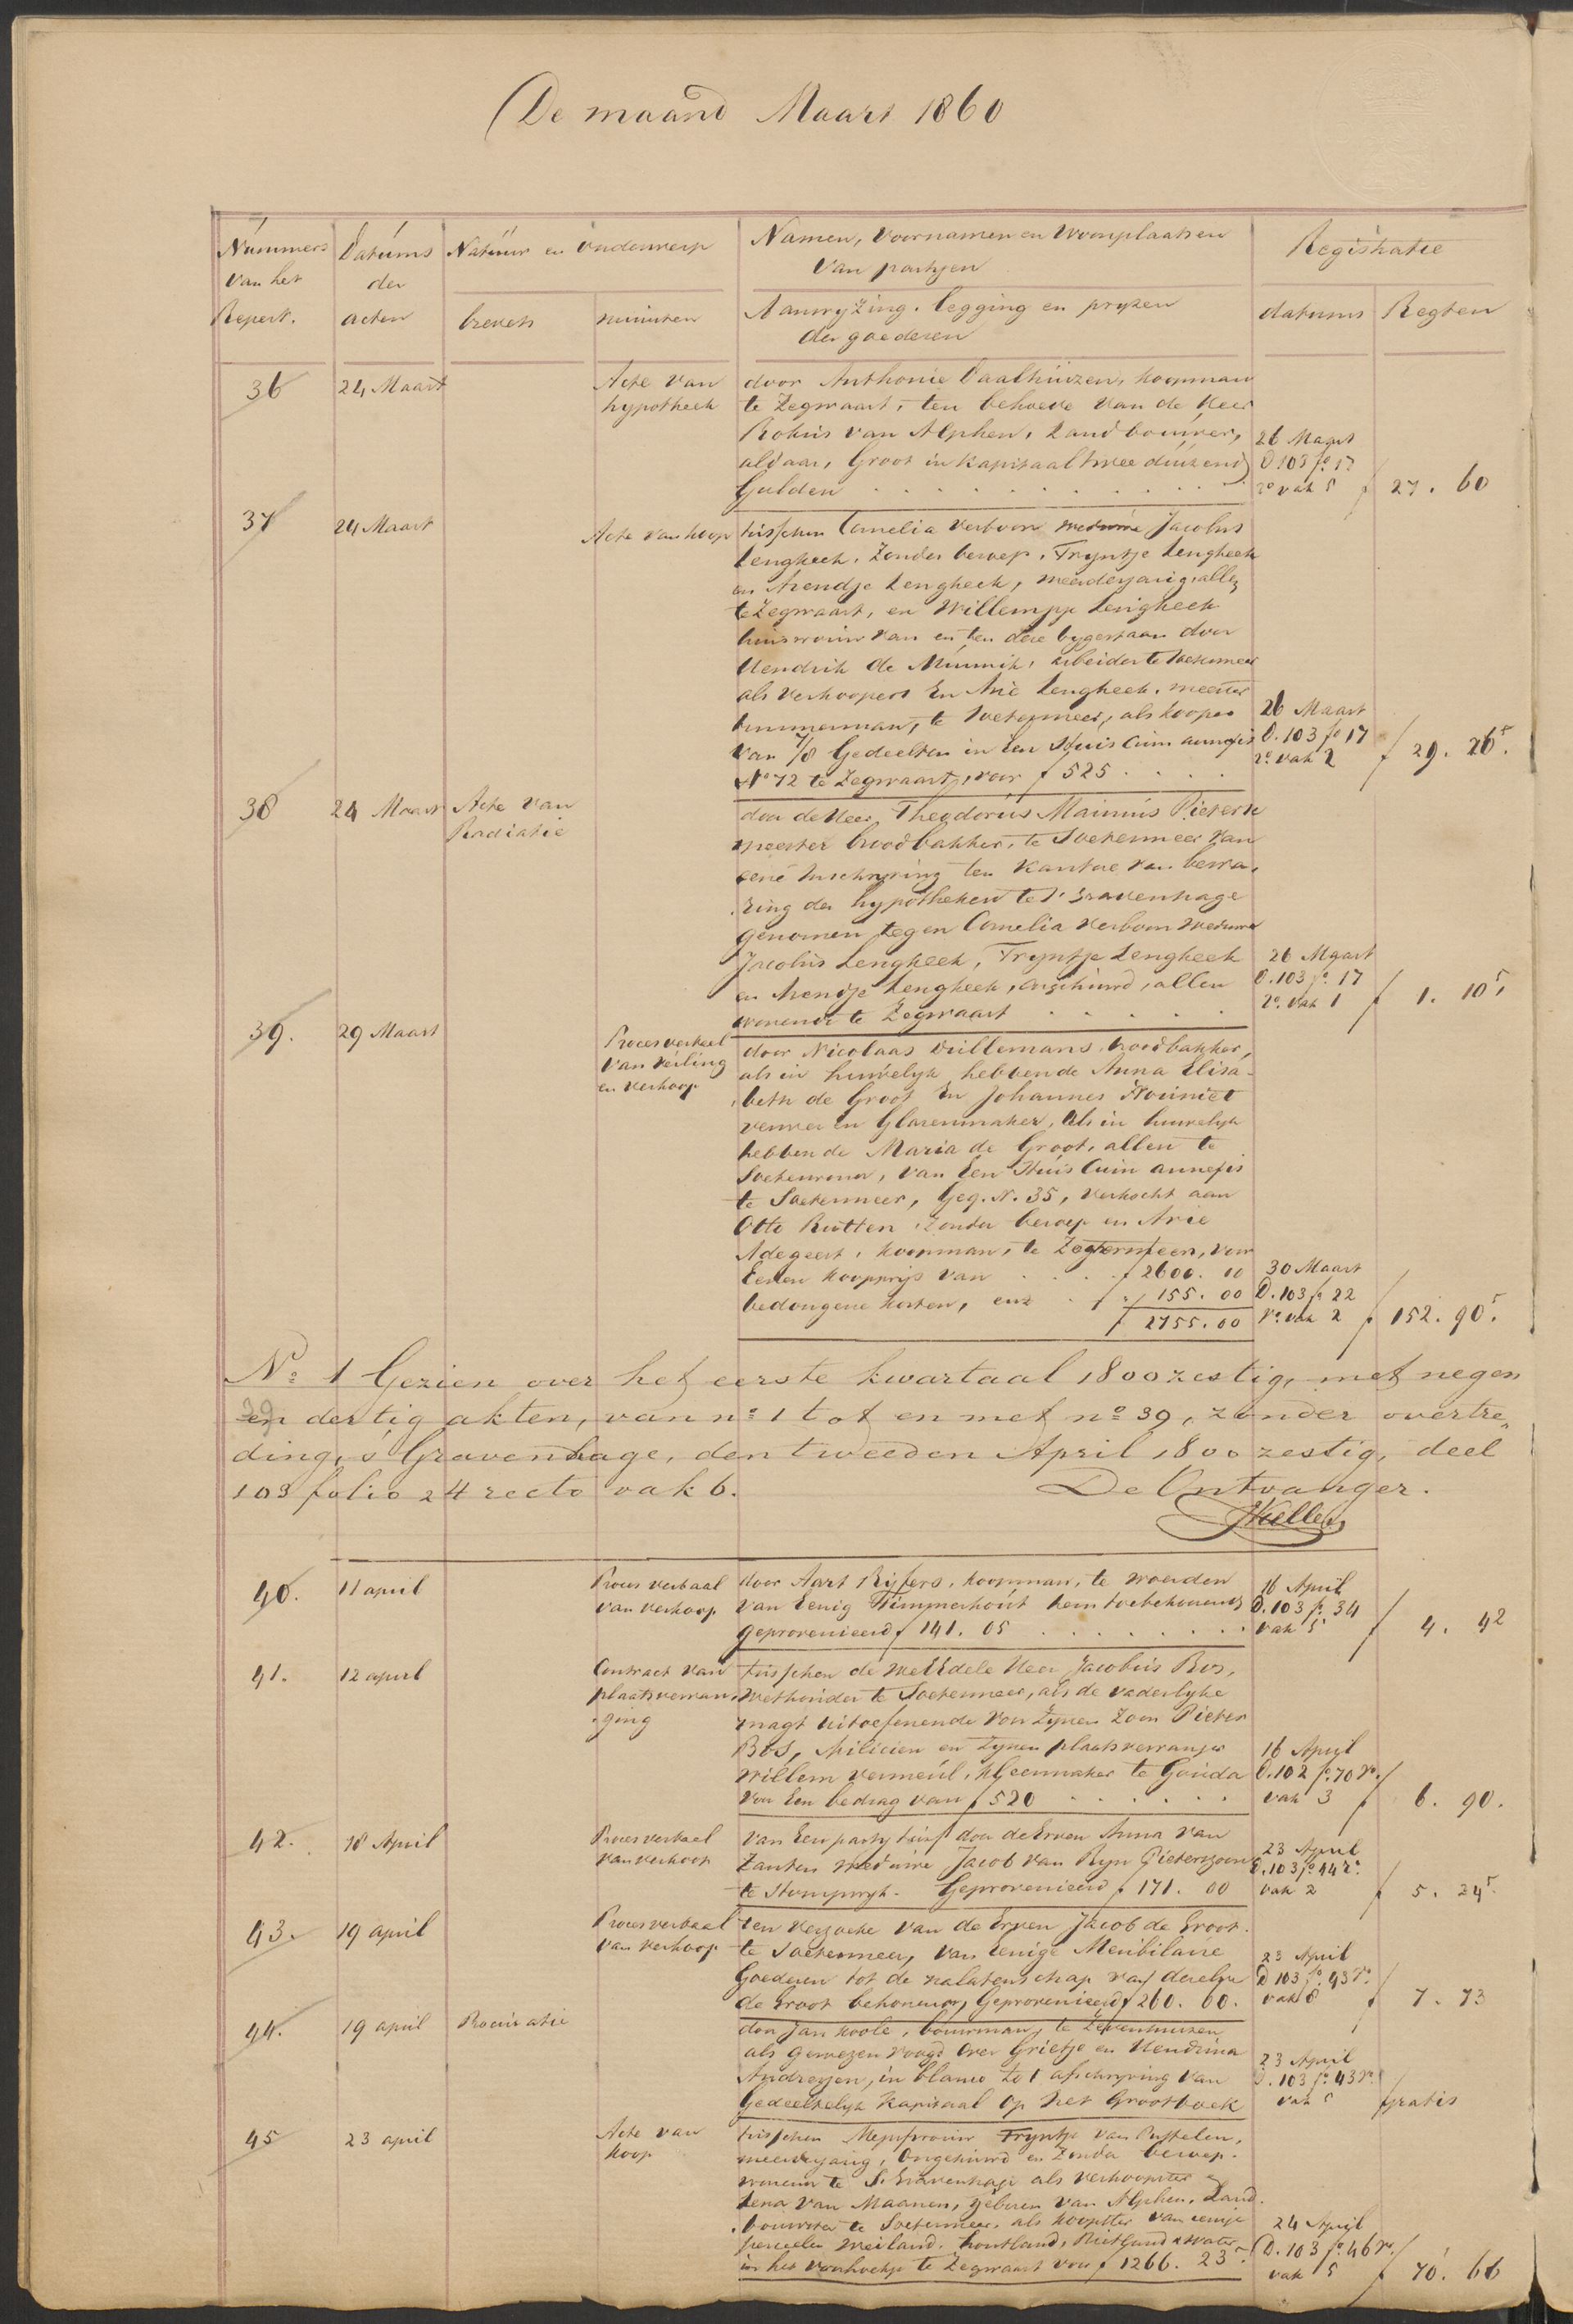 De maand Maart 1860
Nummers van het Repert.
Datums der acten
Natuur en Onderwerp
brevets
minuten
Namen, Voornamen en Woonplaatsen
van partyen
Aanwyzing. legging en pryzen
der goederen
Registratie
datums
Regten
36
24 Maart
Acte van
hypotheek
door Anthonie Vaalhuizen, koopman
te Zegwaart, ten behoeve van de Heer
Rokus van Alphen, Landbouwer,
aldaar, Groot in kapitaal twee duizend
Gulden
26 Maart
D 103 fo. 17
ro vak 5
f 27. 60
37
24 Maart
Acte van koop
tusschen Cornelia Verboon weduwe Jacobus
Lengkeek, Zonder beroep, Tryntje Lengkeek
en Arendje Lengkeek, meerderjarig, allen
te Zegwaart, en Willempje Lengkeek
huisvrouw van en ten deze bygestaan door
Hendrik de Munnik, arbeider te Soetermeer
als Verkoopers En Arie Lengkeek, meester
timmerman, te Soetermeer, als kooper
van 7/8 Gedeelten in Een Huis Cum annexis
No 72 te Zegwaart, voor f 525
26 Maart
D. 103 fo 17
ro. vak 2
f 29. 26⁵.
38
24 Maart
Acte van
Radiatie
door de Heer Theodorus Marinus Pieterse
meester broodbakker, te Soetermeer van
eene Inschryving ten kantore van bewa-
ring der hypotheken te 's Gravenhage
genomen tegen Cornelia Verboon Weduwe
Jacobus Lengkeek, Tryntje Lengkeek
en Arendje Lengkeek, ongehuwd, allen
wonende te Zegwaart
26 Maart
D. 103 fo. 17
ro. vak 1
f 1. 10⁵.
39.
29 Maart
Proces verbaal
van veiling
en verkoop
door Nicolaas Duillemans broodbakker,
als in huwelyk hebbende Anna Elisa-
beth de Groot En Johannes
verwer en Glazenmaker, als in huwelyk
hebbende Maria de Groot, allen te
Soetermeer, van Een Huis Cum annexis
te Soetermeer, Geq. N. 35, verkocht aan
Otto Rutten, zonder beroep en Arie
Adegeest, koopman, te Zoetermeer, voor
Eenen koopprijs van f 2600. 00
bedongene kosten, enz. f 155. 00
f 2755. 00
30 Maart
D. 103 fo 22
ro. vak 2
f 152. 90⁵.
No. 1 Gezien over het eerste kwartaal 1800 zestig, met negen
en dertig akten, van no. 1 tot en met no. 39, zonder overtre-
ding, s' Gravenhage, den tweeden April 1800 zestig, deel
103 folio 24 recto vak 6. De Ontvanger.
40.
11 april
Proces verbaal
van verkoop
door Aart Ryfers, koopman, te Woerden
van Eenig Timmerhout hem toebehoorende
geprovenieerd f 141. 05
16 April
D. 103 fo. 34
vak 5
f 4. 42
41.
12 april
Contract van
plaatsvervan-
ging
tusschen de WelEdele Heer Jacobus Bos,
Wethouder te Soetermeer, als de vaderlyke
magt uitoefenende van zynen Zoon Pieter
Bos, Milicien en zynen plaatsvervanger
Willem Vermeul, kleermaker te Gouda
voor Een bedrag van f 520
16 April
D. 102 fo. 70 ro.
vak 3
f 6. 90.
42.
18 April
Proces verbaal
van verkoop
van Een party turf door de Erven Anna van
Zanten weduwe Jacob van Ryn Pieterszoon
te Stompwyk. Geprovenieerd f 171. 00
23 April
D. 103 fo. 44 ro.
vak 2
f 5. 24⁵.
43.
19 april
Proces verbaal
van verkoop
ten verzoeke van de Erven Jacob de Groot
te Soetermeer, van Eenige Meubilaire
Goederen tot de nalatenschap van denzelven
de Groot behoorende, Geprovenieerd f 260. 60.
23 April
D 103 fo. 43 ro.
vak 8
f 7. 73
44.
19 april
Procuratie
door Jan Koole, bouwman, te Zevenhuizen
als gewezen voogd over Grietje en Hendrina
Andreyen, in blanco tot afschryving van
Gedeeltelyk kapitaal op het Grootboek
23 April
D. 103 fo. 43 ro.
vak
gratis
45
23 april
Acte van
koop
tusschen Mejufvrouw Tryntje van
meerderjarig, Ongehuwd en Zonder beroep.
wonende te S. Gravenhage als Verkoopster en
Lena van Maanen, geboren van Alphen, Land-
bouwster te Soetermeer, als koopster van eenige
perceelen weiland, houtland, Rietland & water
in het te Zegwaart voor f 1266. 23⁵.
24 April
D. 103 fo. 46 ro.
vak 5
f 70. 66